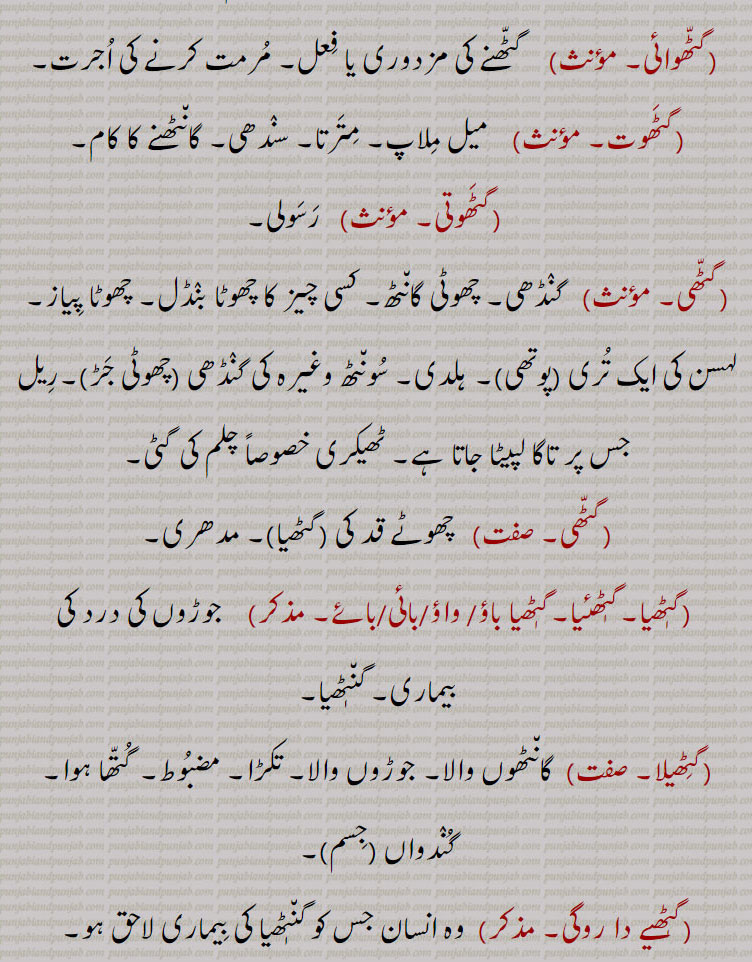 (گٹھّوائی۔ مؤنث) گٹھّنے کی مزدوری یا فِعل۔ مُرمت کرنے کی اُجرت۔
(گٹھَوت۔ مؤنث) میل مِلاپ۔ مِتَرتا۔ سنْدھی۔ گانْٹھنے کا کام۔
(گٹھَوتی۔ مؤنث) رَسَولی۔
(گٹھّی۔ مؤنث) گنْڈھی۔ چھوٹی گانْٹھ۔ کسی چیز کا چھوٹا بنْڈل۔ چھوٹا پِیاز۔
لہسن کی ایک تُری (پوتھی)۔ ہلدی۔ سُونْٹھ وغیرہ کی گنْڈھی (چھوٹی جَڑ)۔ رِیل
جس پر تاگا لپیٹا جاتا ہے۔ ٹھیکری خصوصاً چلم کی گٹی۔
(گٹھّی۔ صفت) چھوٹے قد کی (گٹھیا)۔ مدھری۔
(گٹھیا۔ گٹھئیا۔ گٹھیا باؤ/ واؤ/بائی/بائے۔ مذکر) جوڑوں کی درد کی
بیماری۔ گنْٹھیا۔
(گٹھِیلا۔ صفت) گانْٹھوں والا۔ جوڑوں والا۔ تکڑا۔ مضبُوط۔ گُتھّا ہوا۔
گُنْدواں (جِسم)۔
(گٹھیے دا روگی۔ مذکر) وہ انسان جس کو گنْٹھیا کی بِیماری لاحق ہو۔